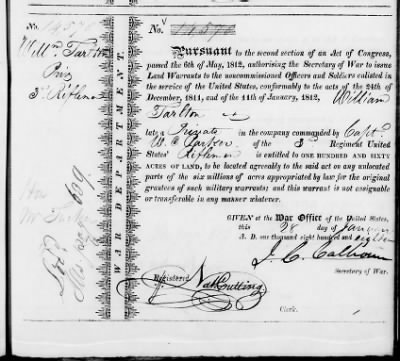 No. 14576
Pursuant to the second section of an Act of Congress,
passed the 6th of May, 1812, authorising the Secretary of War to issue
Land Warrants to the noncommissioned Officers and Soldiers enlisted in
the service of the United States, conformably to the acts of the 24th of
December, 1811, and of the 11th of January, 1812, William
Tarlton
late a Private in the company commanded by Capt
of the 3d Regiment United
States' Riflemen is entitled to ONE HUNDRED AND SIXTY
ACRES OF LAND, to be located agreeably to the said act on any unlocated
parts of the six millions of acres appropriated by law for the original
grantees of such military warrants; and this warrant is not assignable
or transferable in any manner whatever.
GIVEN at the War Office of the United States,
this 28 day of January
A. D. one thousand eight hundred and eighteen
J. C. Calhoun
Secretary of War.
Registered Nath Cutting
Clerk.
No. 14576
Willm Tarlton
Priv
3d Riflemen
WAR DEPARTMENT.
Hon
609